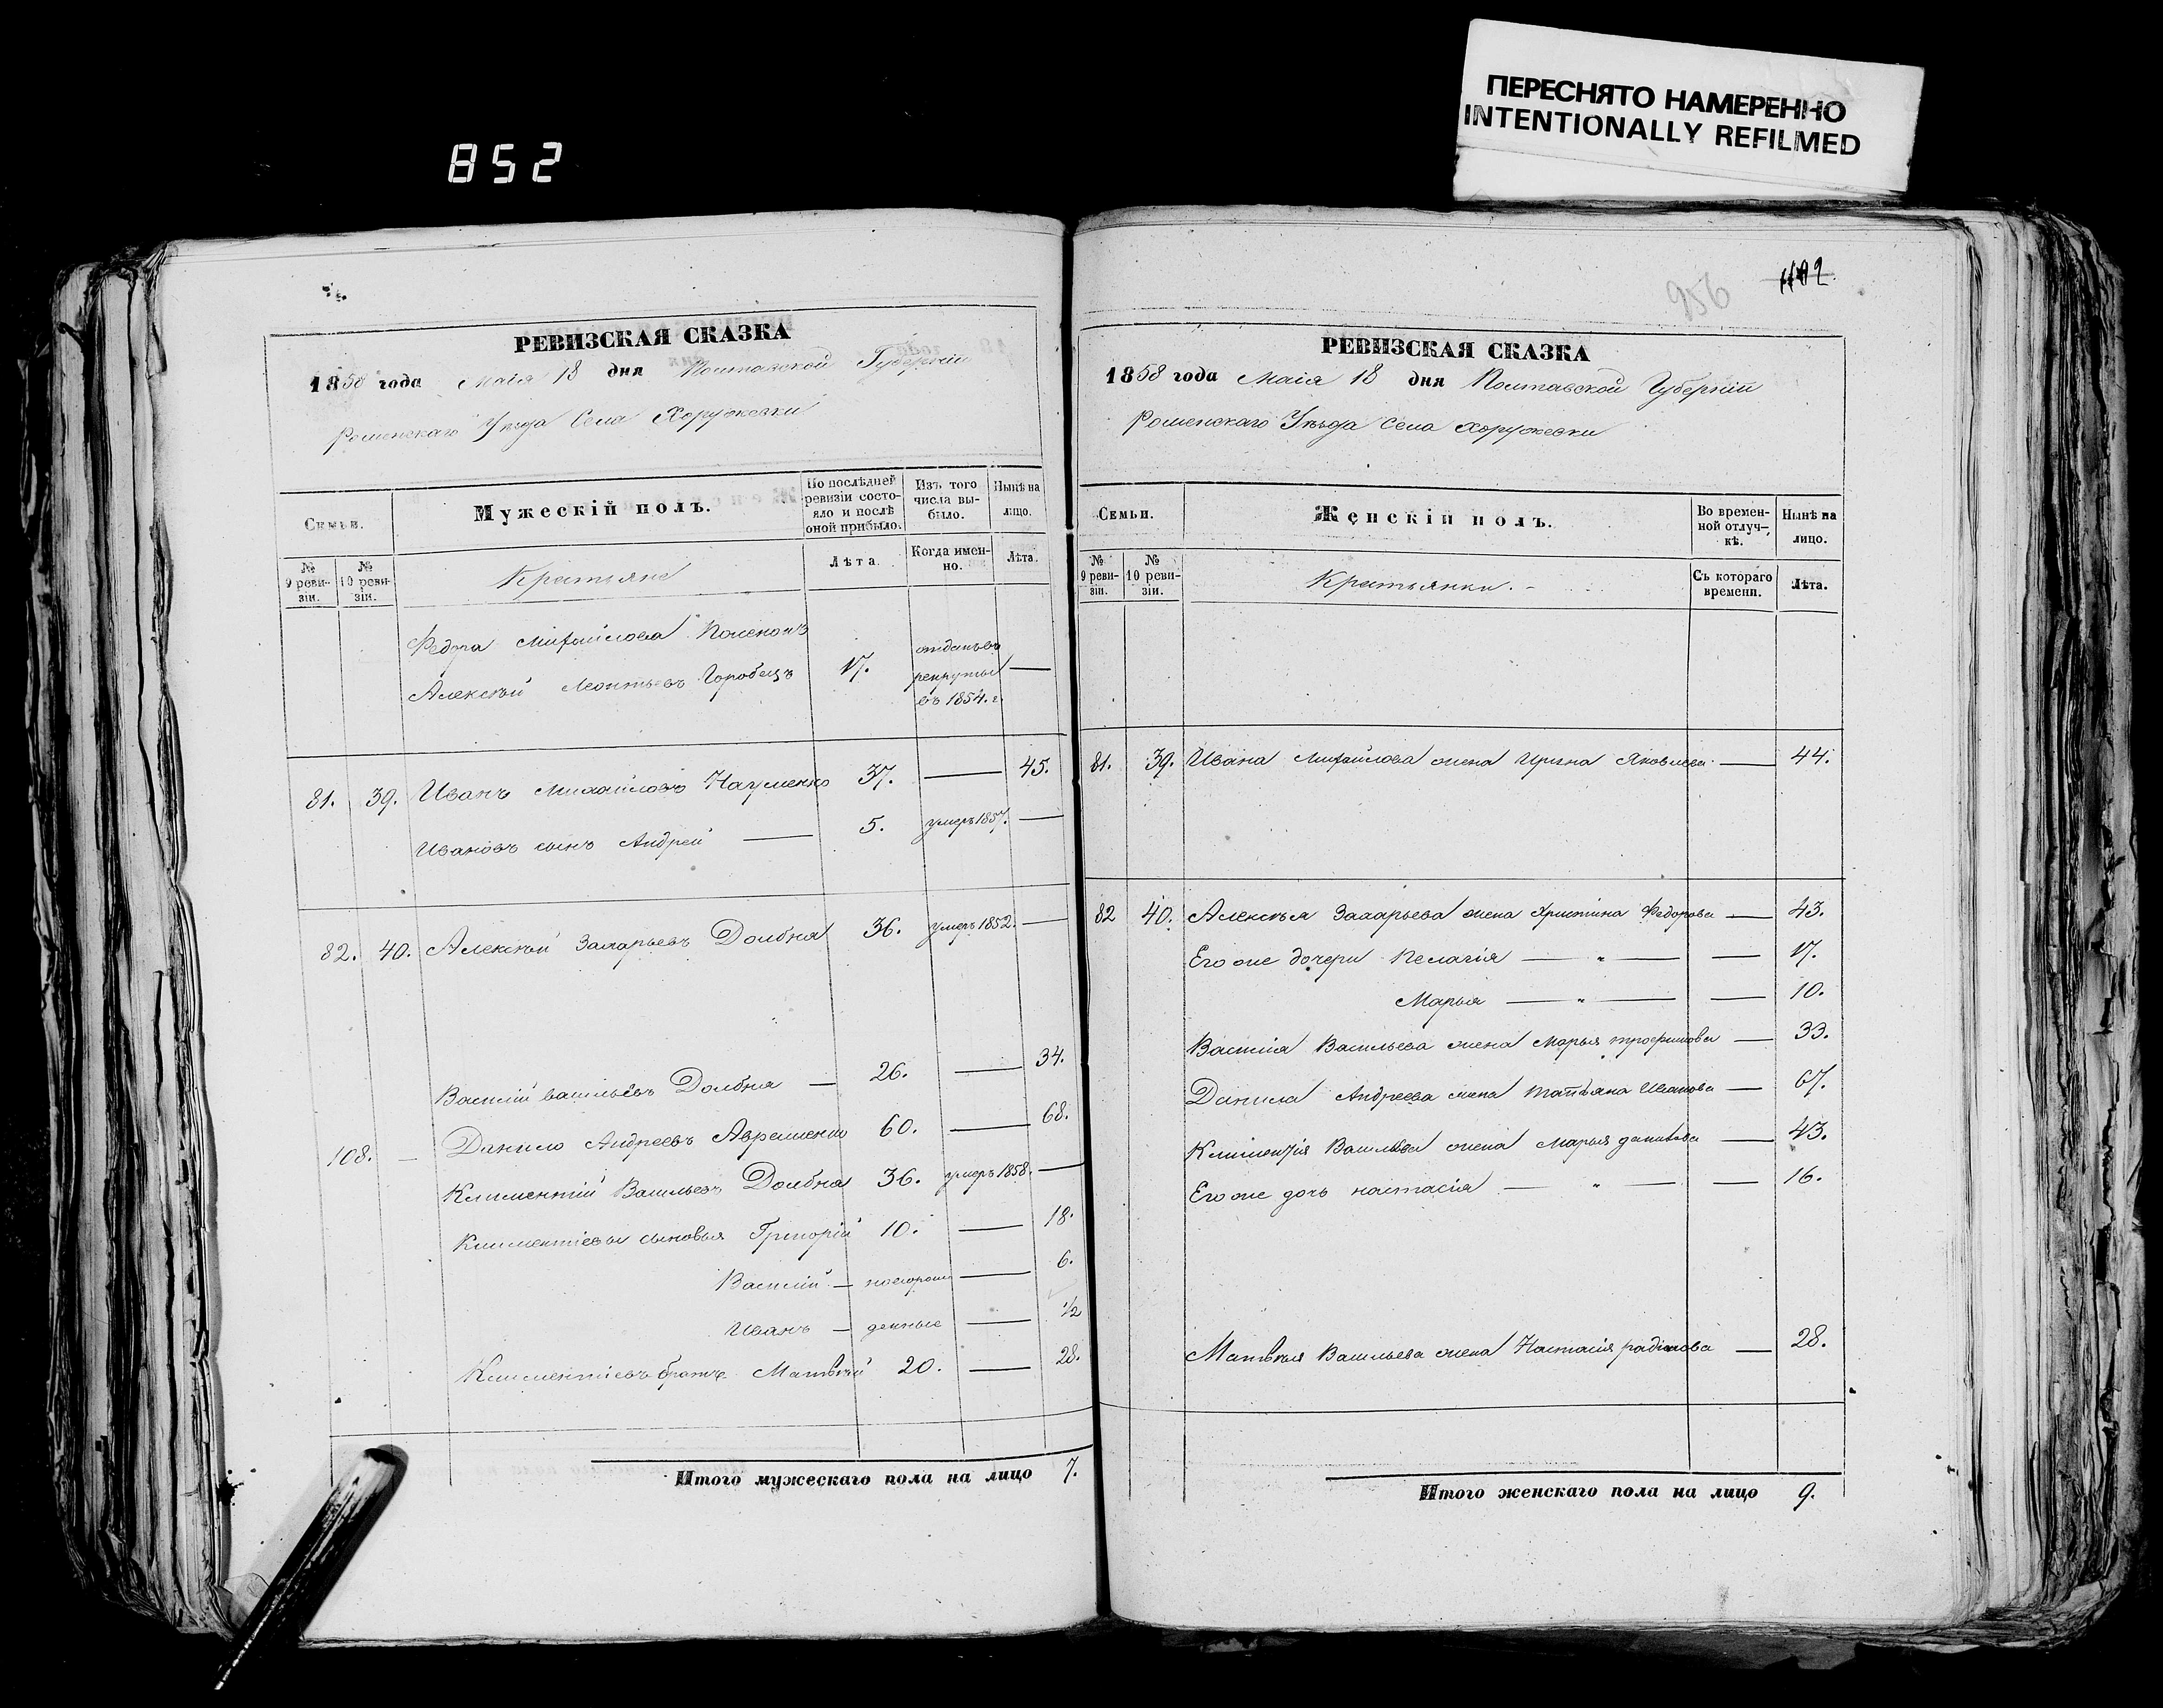 ПЕРЕСНЯТО НАМЕРЕННО
INTENTIONALLY REFILMED
852
РЕВИЗСКАЯ СКАЗКА
1858 года Маія 18 дня Полтавской Губерніи
Роменскаго Уѣзда Села Хоружевки
Семьи.
Мужескій полъ.
По послѣдней ревизіи состояло и послѣ оной прибыло.
Изъ того числа выбыло.
Нынѣ на лицо.
№ 9 ревизіи.
№ 10 ревизіи.
Крестьяне
Лѣта.
Когда именно.
Лѣта.
Федора Михайлова
Алексѣй Леонтьевъ Горобецъ 17. отданъ въ рекруты въ 1854. г. —
81. 39. Иванъ Михайловъ Науменко 37. — 45.
Ивановъ сынъ Андрей — 5. умеръ 1857. —
82. 40. Алексѣй Захарьевъ Долбня 36. умеръ 1852. —
Василій Васильевъ Долбня — 26. — 34.
108. — Данило Андреевъ Авраменко 60. — 68.
Климентій Васильевъ Долбня 36. умеръ 1858. —
Климентіевы сыновья Григорій 10. — 18.
Василій — новорож — 6.
Иванъ — денные — 1/2
Климентіевъ братъ Матвѣй 20. — 28.
Итого мужескаго пола на лицо 7.
956
1102.
РЕВИЗСКАЯ СКАЗКА
1858 года Маія 18 дня Полтавской Губерніи
Роменскаго Уѣзда Села Хоружевки
Семьи.
Женскій полъ.
Во временной отлучкѣ.
Нынѣ на лицо.
№ 9 ревизіи.
№ 10 ревизіи.
Крестьянки.
Съ котораго времени.
Лѣта.
81. 39. Ивана Михайлова жена Ирина Яковлева — 44.
82 40. Алексѣя Захарьева жена Христина Федорова — 43.
Его же дочери Пелагія — " — — 17.
Марья — " — — 10.
Василія Васильева жена Марья Трофимова — 33.
Данила Андреева жена Татьяна Иванова — 67.
Климентія Васильева жена Марья Данилова — 43.
Его же дочь Настасія — " — — 16.
Матвѣя Васильева жена Настасія Радіонова — 28.
Итого женскаго пола на лицо 9.